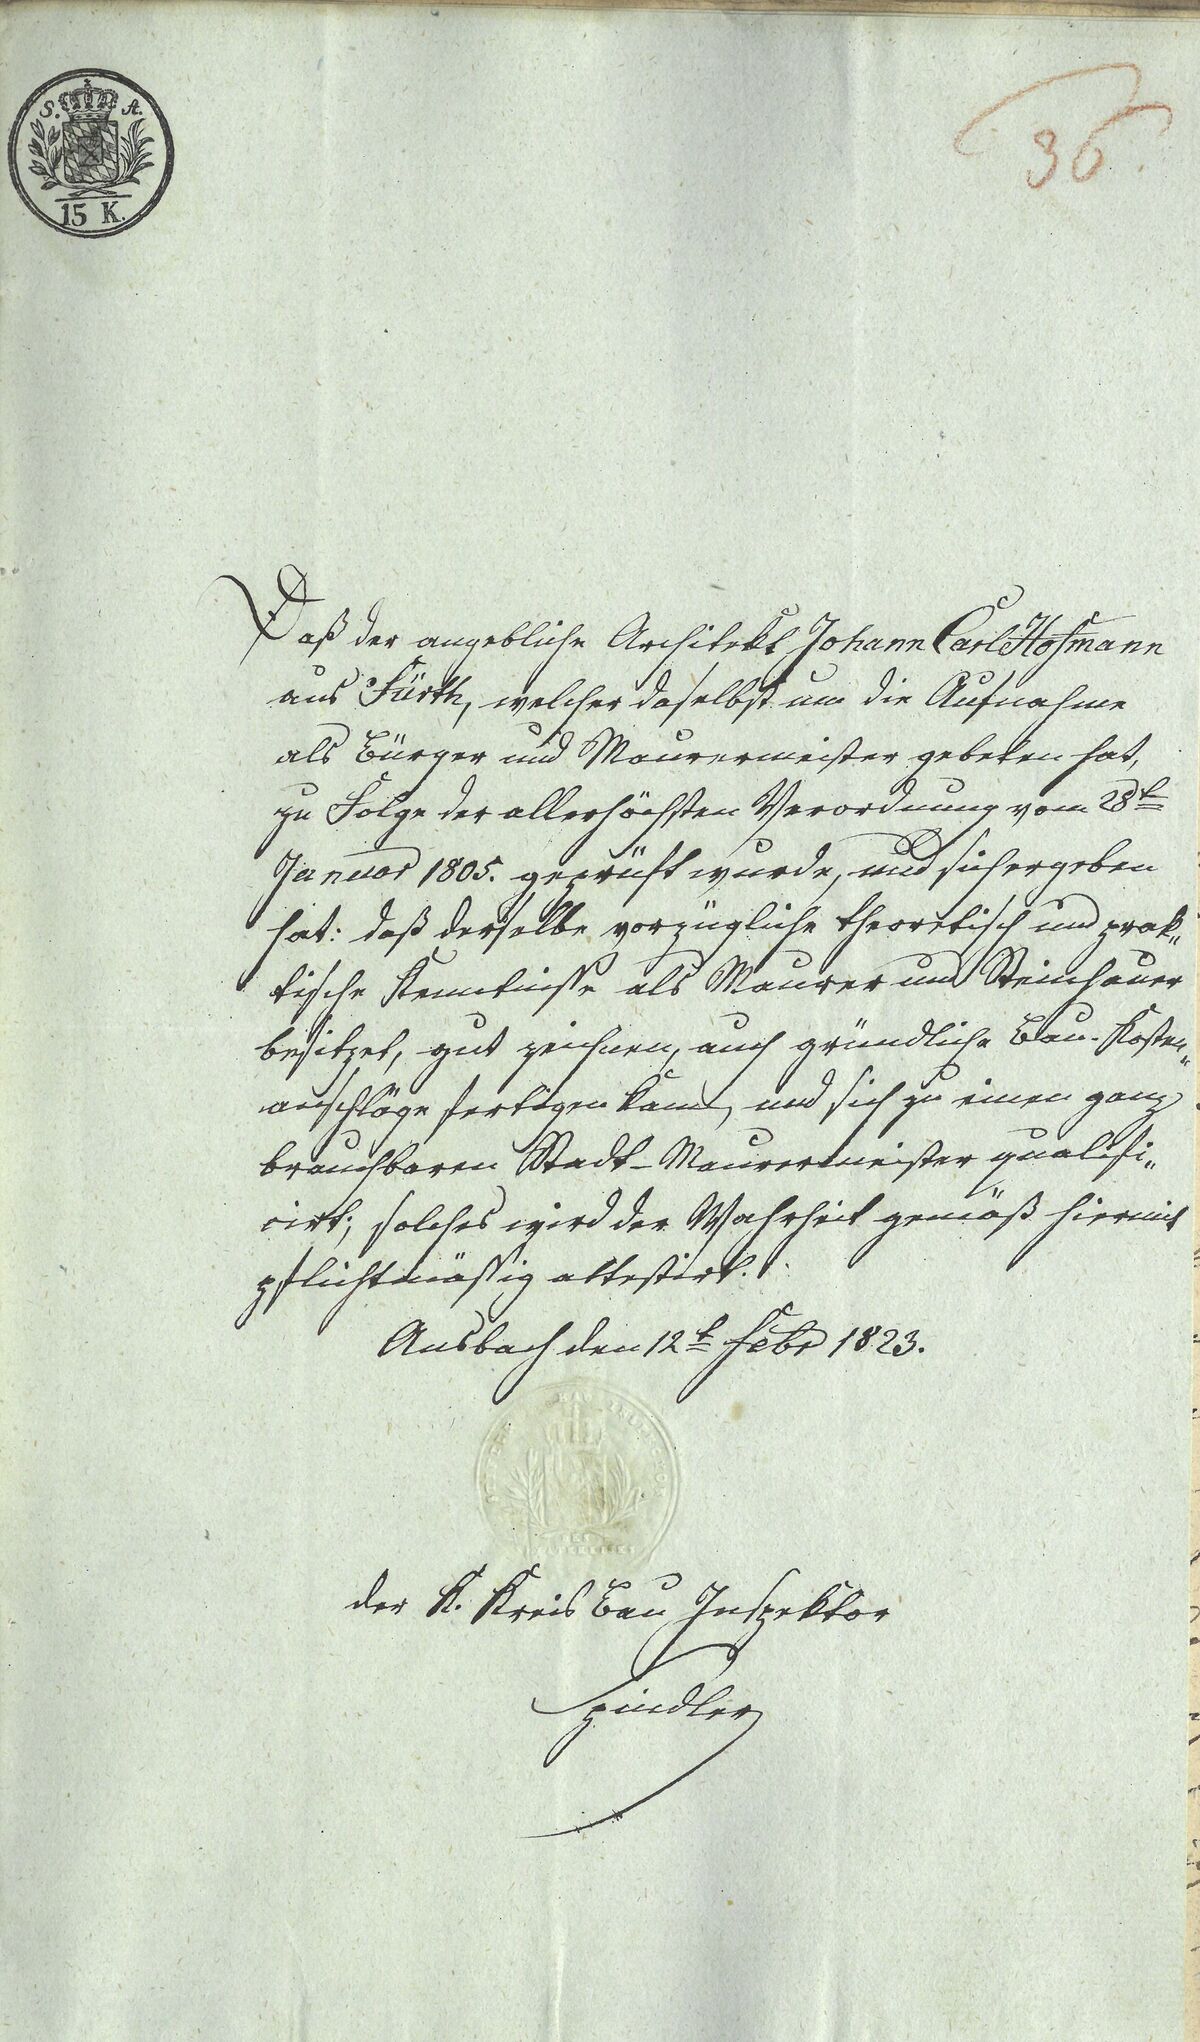 S. A.
15 K.
36
Daß der angebliche Architekt Johann Carl Hofmann
aus Fürth, welcher daselbst um die Aufnahme
als Bürger und Maurermeister gebeten hat,
zu Folge der allerhöchsten Verordnung vom 28t
Januar 1805. geprüft wurde, und sich ergeben
hat: daß derselbe vorzügliche theoretisch und prak„
tische Kenntniße als Maurer und Steinhauer
besitzet, gut zeichnen, auch gründliche Bau-Kosten„
anschläge fertigen kann, und sich zu einen ganz
brauchbaren Stadt-Maurermeister qualifi„
cirt; solches wird der Wahrheit gemäß hiermit
pflichtmäßig attestirt.
Ansbach den 12t Febr 1823.
der K. Kreis Bau Inspektor
Spindler